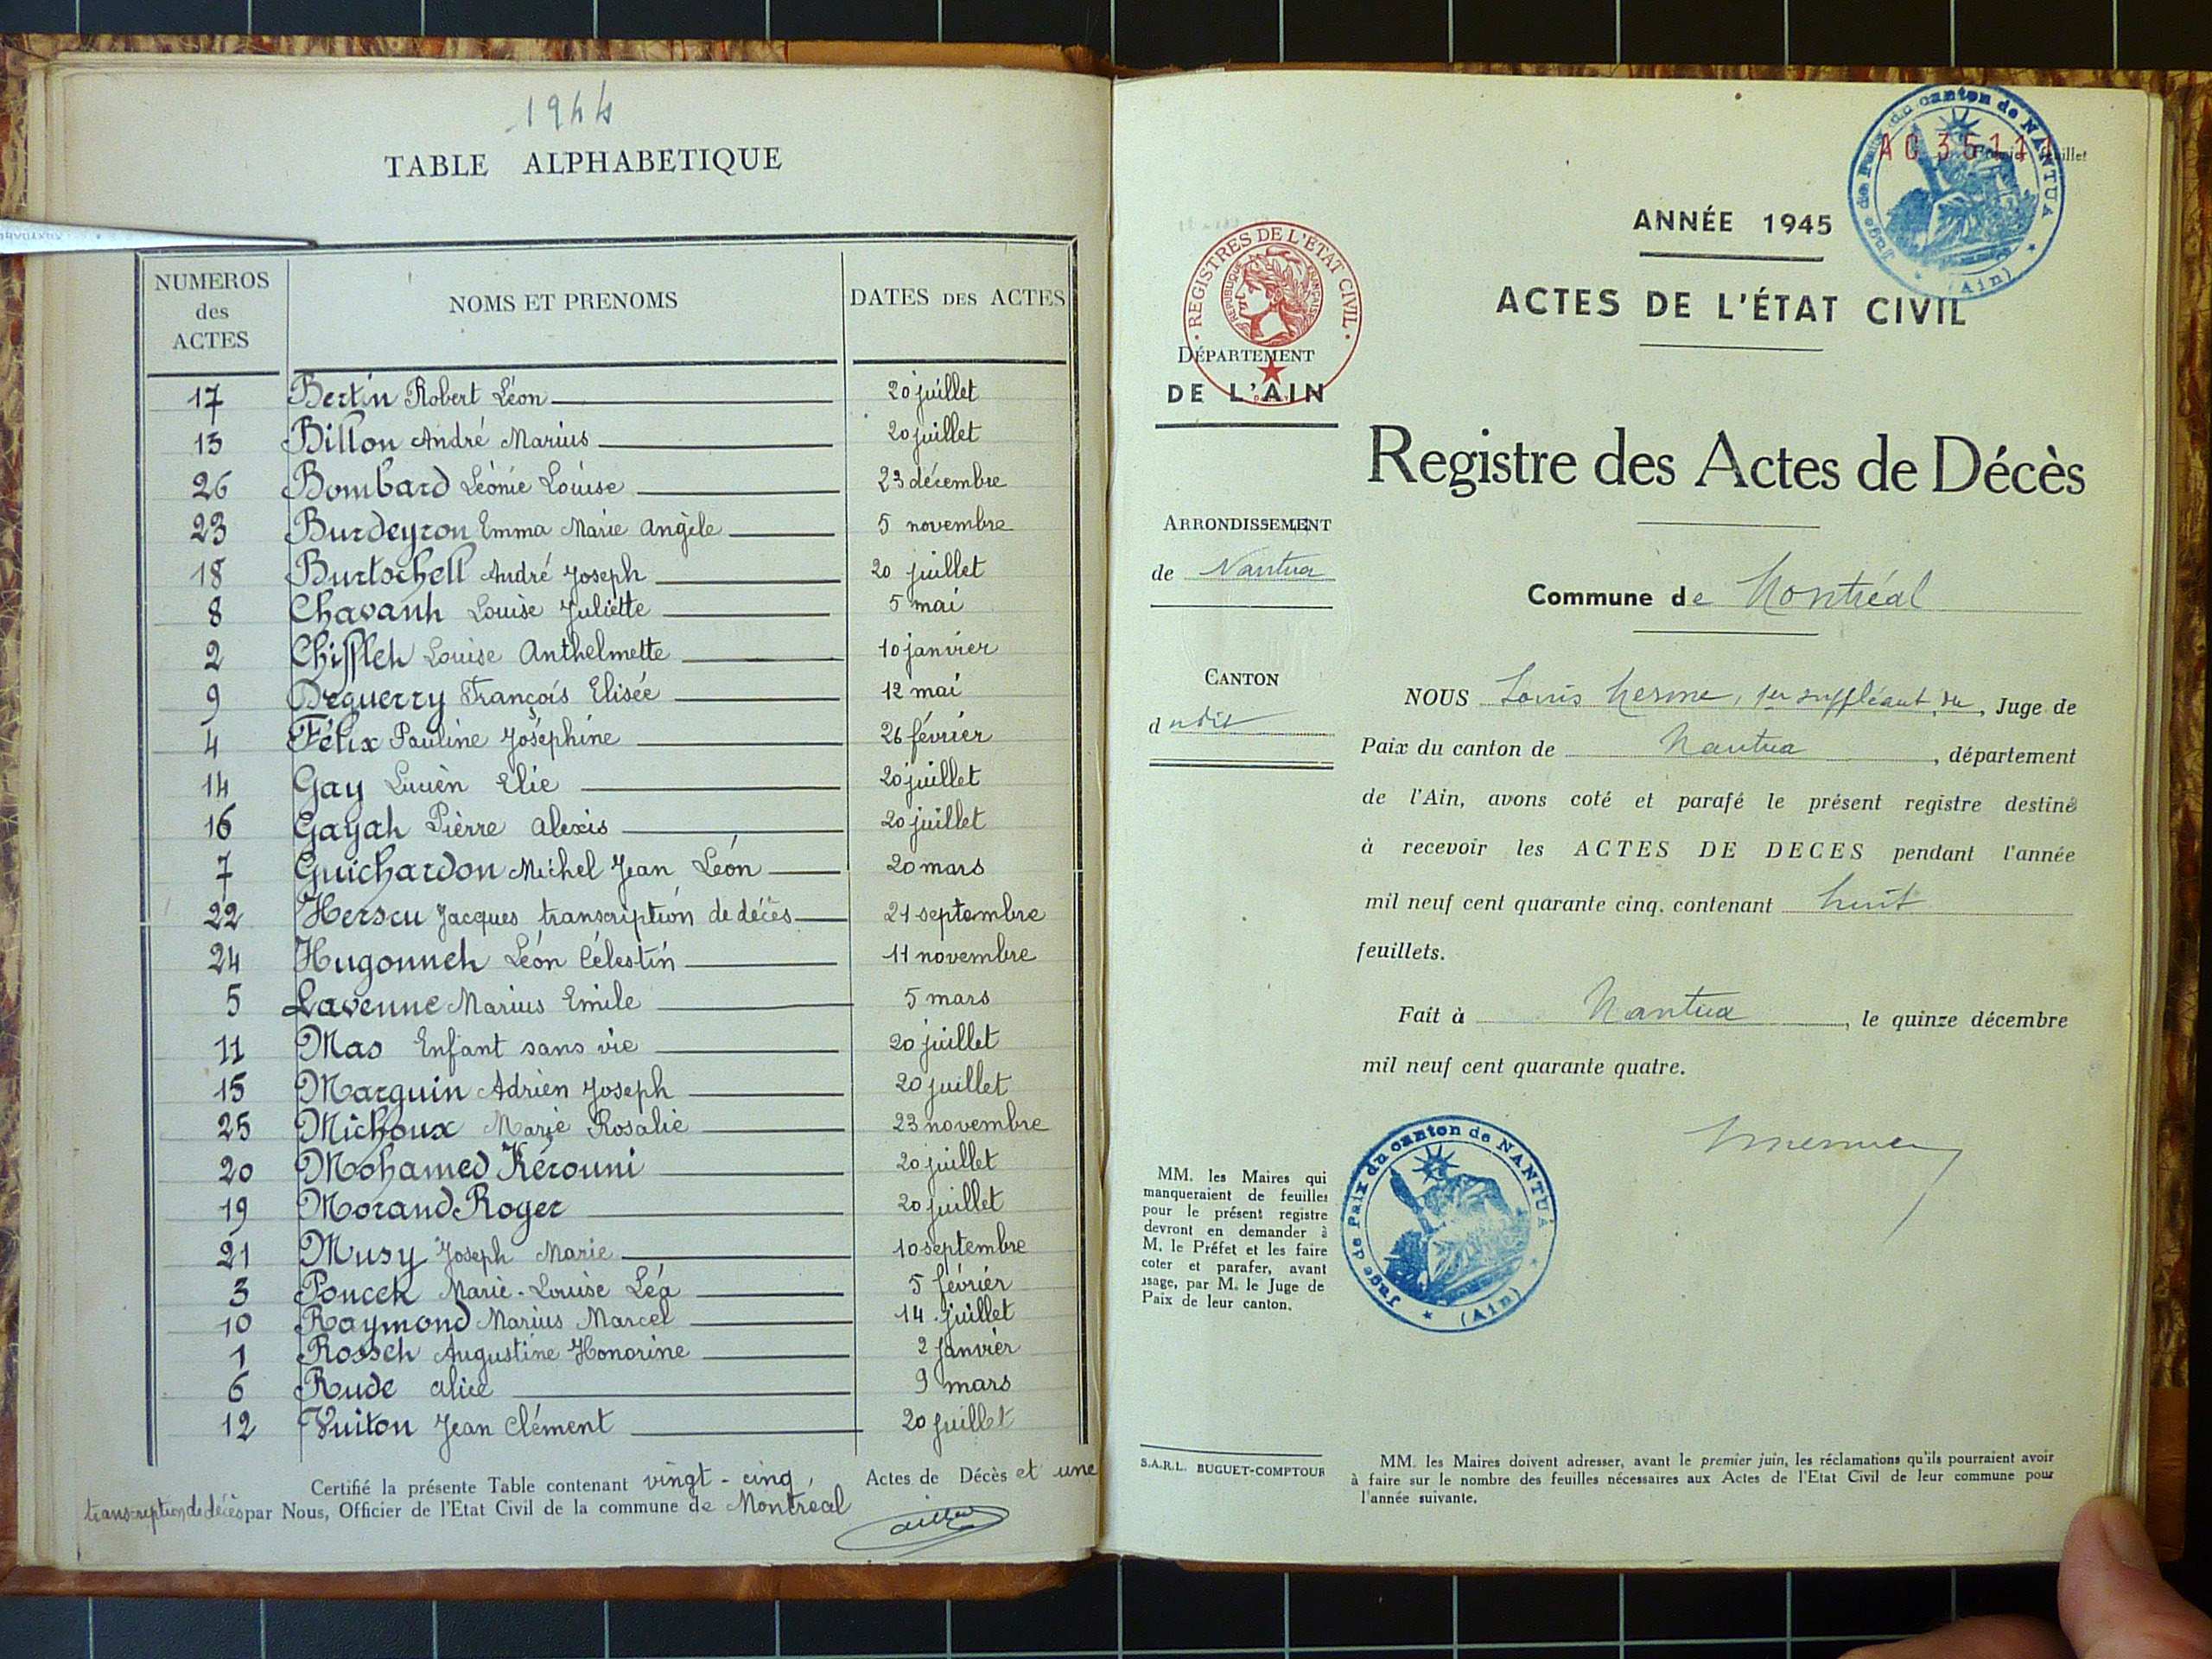 1944
TABLE ALPHABETIQUE
NUMEROS des ACTES NOMS ET PRENOMS DATES DES ACTES
17 Bertin Robert Léon 20 juillet
13 Billon André Marius 20 juillet
26 Bombard Léonie Louise 23 décembre
23 Burdeyron Emma Marie Angèle 5 novembre
18 Burtschell André Joseph 20 juillet
8 Chavant Louise Juliette 5 mai
2 Chifflet Louise Anthelmette 10 janvier
9 Deguerry François Elisée 12 mai
4 Félix Pauline Joséphine 26 février
14 Gay Lucien Elie 20 juillet
16 Gayat Pierre Alexis 20 juillet
7 Guichardon Michel Jean Léon 20 mars
22 Herscu Jacques transcription de décès 21 septembre
24 Hugonnet Léon Célestin 11 novembre
5 Lavenne Marius Emile 5 mars
11 Mas Enfant sans vie 20 juillet
15 Marguin Adrien Joseph 20 juillet
25 Michoux Marie Rosalie 23 novembre
20 Mohamed Kérouni 20 juillet
19 Morand Roger 20 juillet
21 Musy Joseph Marie 10 septembre
3 Poncet Marie-Louise Léa 5 février
10 Raymond Marius Marcel 14 juillet
1 Rosset Augustine Honorine 2 janvier
6 Rude Alice 9 mars
12 Vuiton Jean Clément 20 juillet
Certifié la présente Table contenant vingt-cinq, Actes de Décès et une
transcription de décès par Nous, Officier de l'Etat Civil de la commune de Montréal
Juge de Paix du canton de NANTUA (Ain)
ANNÉE 1945
REGISTRES DE L'ÉTAT CIVIL
RÉPUBLIQUE FRANÇAISE
ACTES DE L'ÉTAT CIVIL
DÉPARTEMENT
DE L'AIN
Registre des Actes de Décès
ARRONDISSEMENT
de Nantua
Commune de Montréal
CANTON
dudit
NOUS Louis Mesme, 1er suppléant du, Juge de
Paix du canton de Nantua, département
de l'Ain, avons coté et parafé le présent registre destiné
à recevoir les ACTES DE DECES pendant l'année
mil neuf cent quarante cinq, contenant huit
feuillets.
Fait à Nantua, le quinze décembre
mil neuf cent quarante quatre.
Juge de Paix du canton de NANTUA (Ain)
MM. les Maires qui
manqueraient de feuilles
pour le présent registre
devront en demander à
M. le Préfet et les faire
coter et parafer, avant
usage, par M. le Juge de
Paix de leur canton.
S.A.R.L. BUGUET-COMPTOUR
MM. les Maires doivent adresser, avant le premier juin, les réclamations qu'ils pourraient avoir
à faire sur le nombre des feuilles nécessaires aux Actes de l'Etat Civil de leur commune pour
l'année suivante.